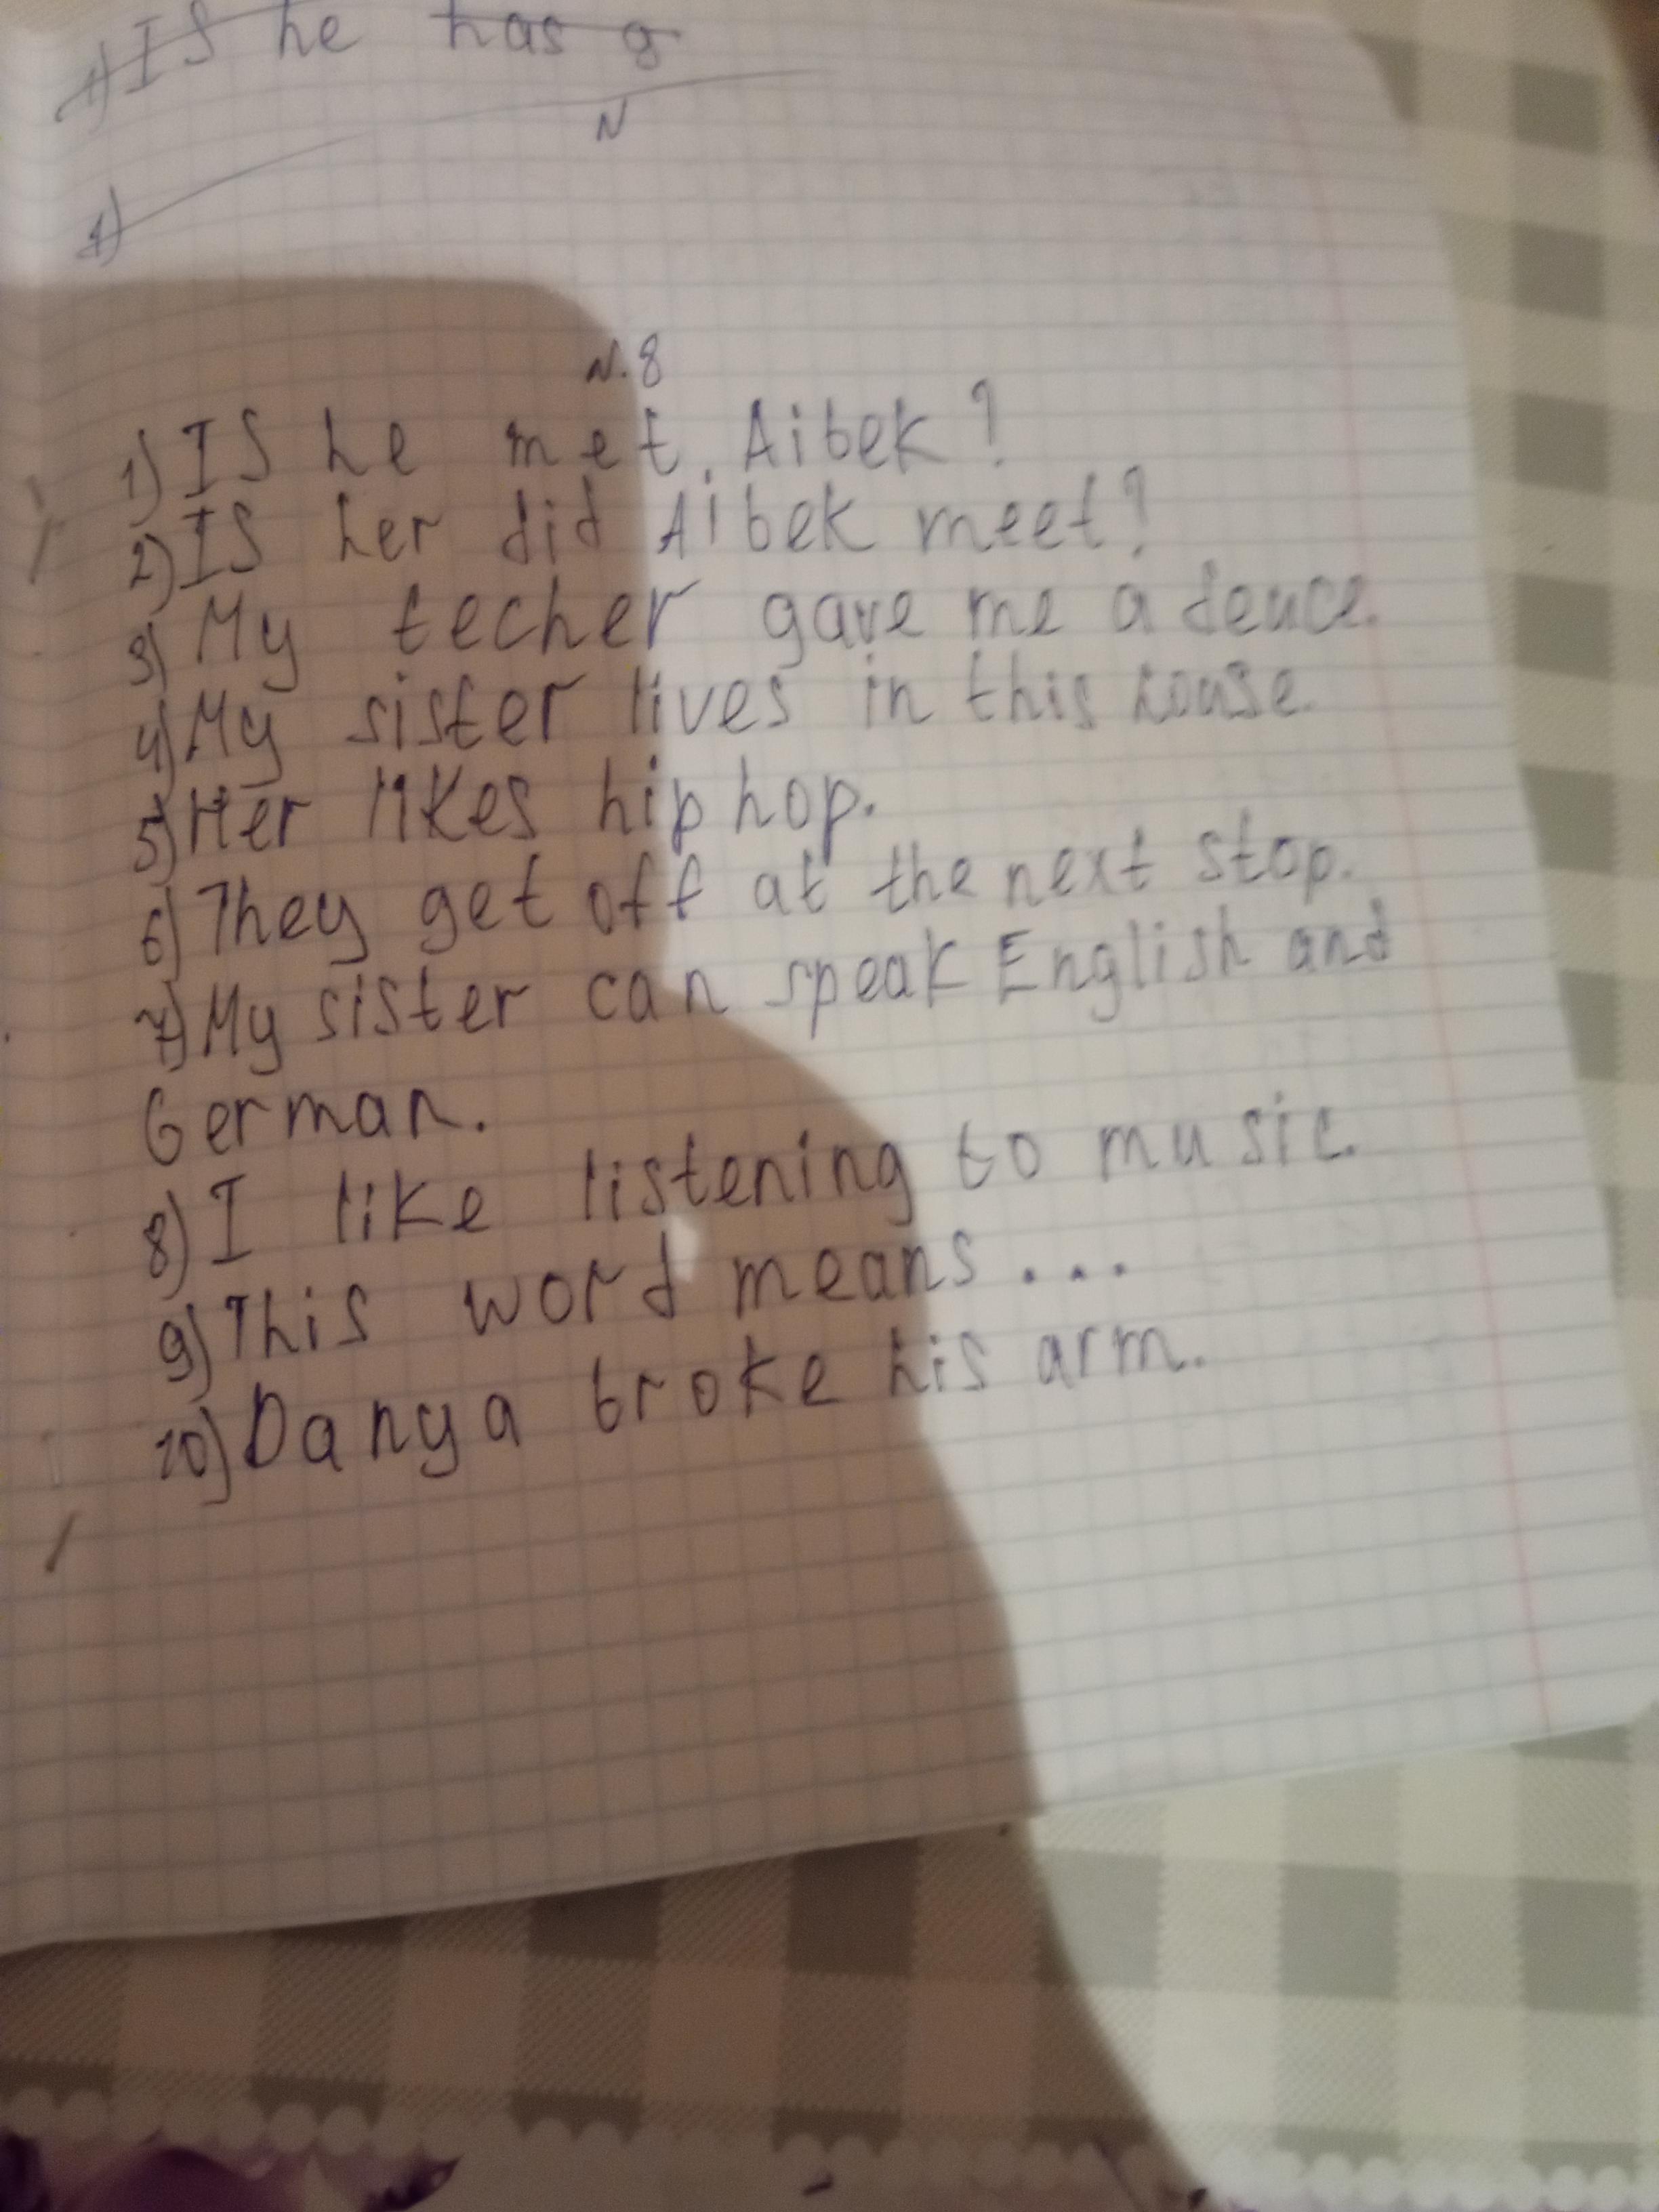 1) IS he has a
N
1)
N.8
1) IS he met. Aibek?
2) IS her did Aibek meet?
3) My techer gave me a deuce.
4) My sister lives in this house.
5) Her likes hip hop.
6) They get off at the next stop.
7) My sister can speak English and
German.
8) I like listening to music.
9) This word means...
10) Danya broke his arm.